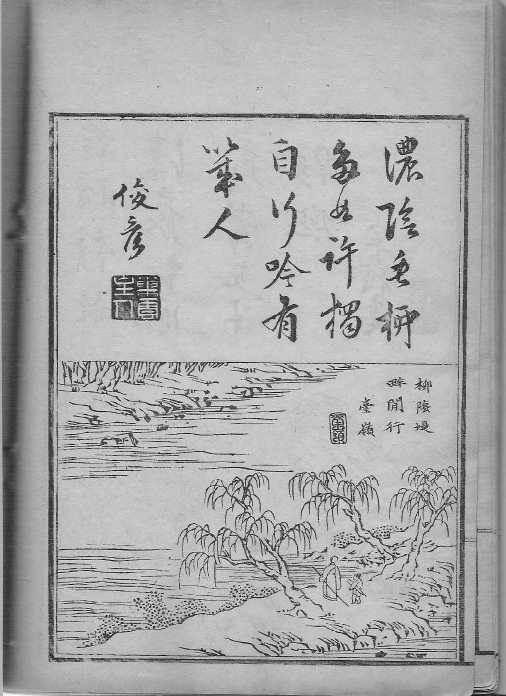 濃陰垂柳
多如許獨
自行吟有
幾人
俊彦
柳陰堤
畔閒行
臺嶺